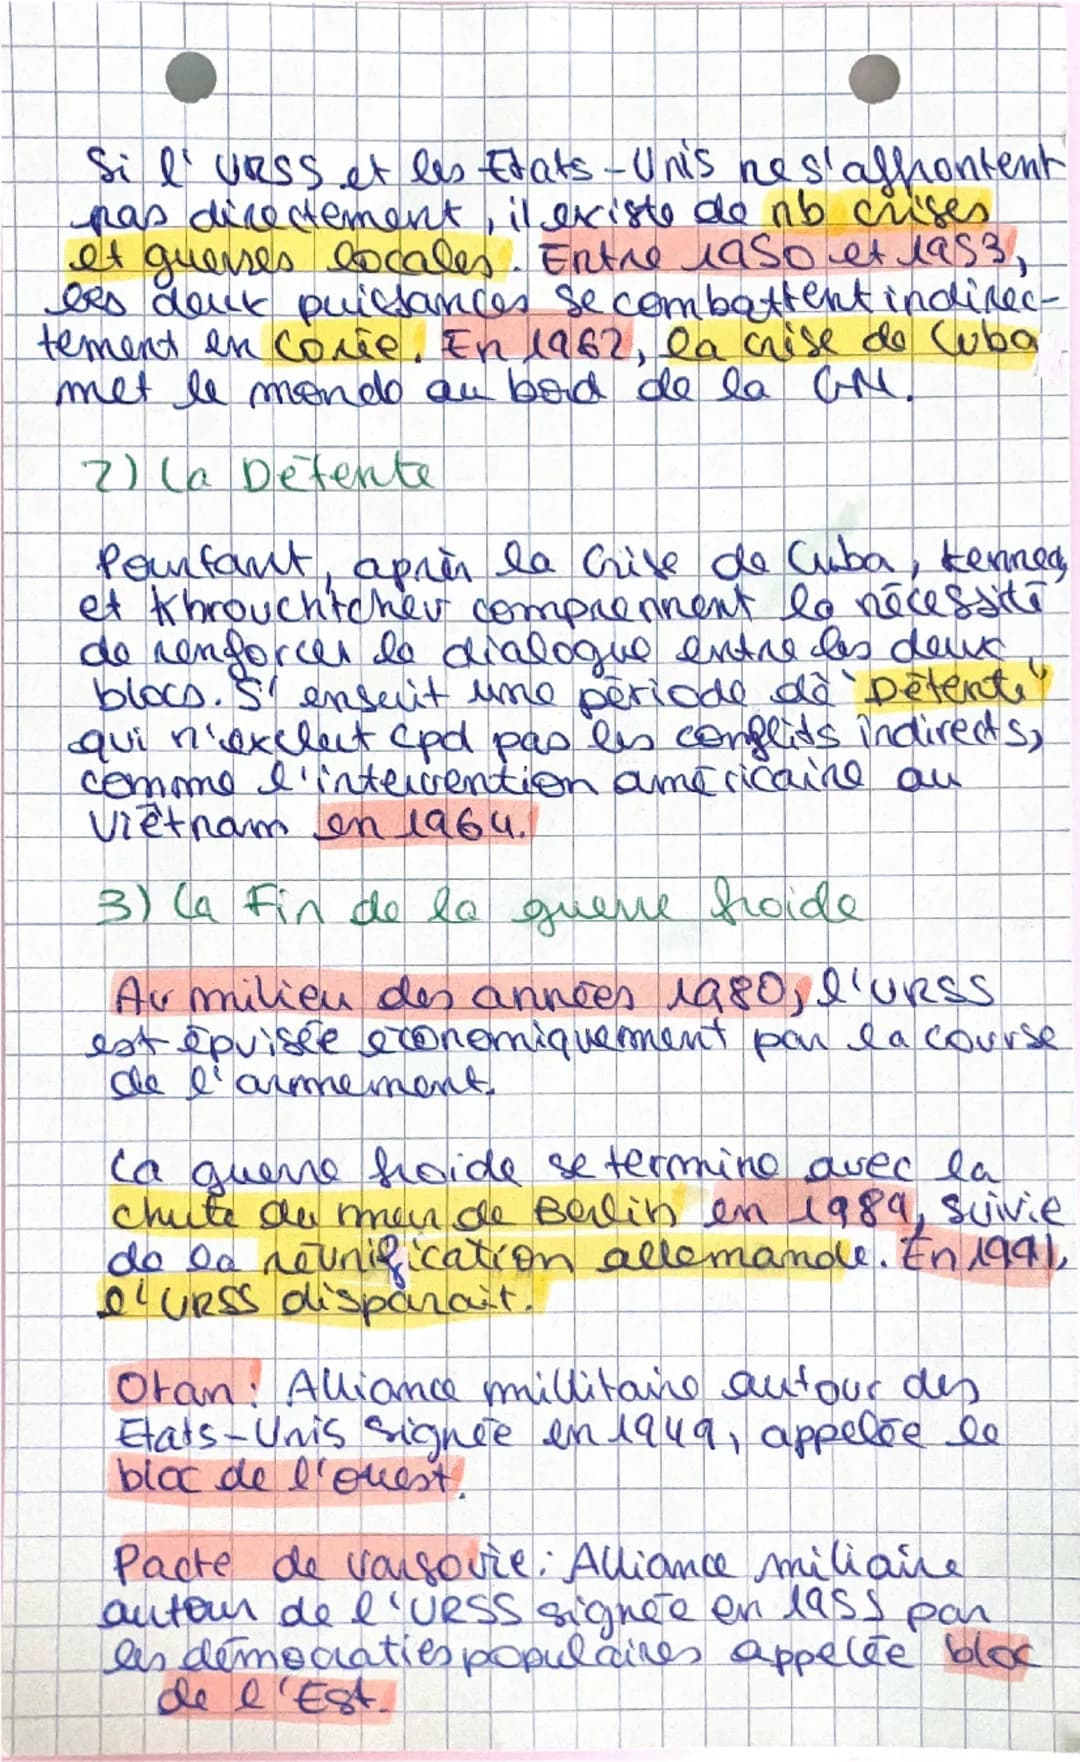 Si l'URSS et les Etats-Unis ne s'affrontent
pas directement, il existe de nb crises
et guerres locales. Entre 1950 et 1953,
les deux puissances se combattent indirec-
tement en Corée. En 1962, la crise de Cuba
met le monde au bord de la GN.
2) La Détente
Pourtant, après la Crise de Cuba, Kennedy
et Khrouchtchev comprennent la nécessité
de renforcer le dialogue entre les deux
blocs. S'ensuit une période de "Détente"
qui n'exclut cpd pas les conflits indirects,
comme l'intervention américaine au
Viêtnam en 1964.
3) La Fin de la guerre froide
Au milieu des années 1980, l'URSS
est épuisée économiquement par la course
de l'armement.
La guerre froide se termine avec la
chute du mur de Berlin en 1989, suivie
de la réunification allemande. En 1991,
l'URSS disparait.
Otan: Alliance millitaire autour des
Etats-Unis signée en 1949, appelée le
bloc de l'ouest.
Pacte de Varsovie: Alliance miliaire
autour de l'URSS signée en 1955 par
les démocraties populaires appelée bloc
de l'Est.